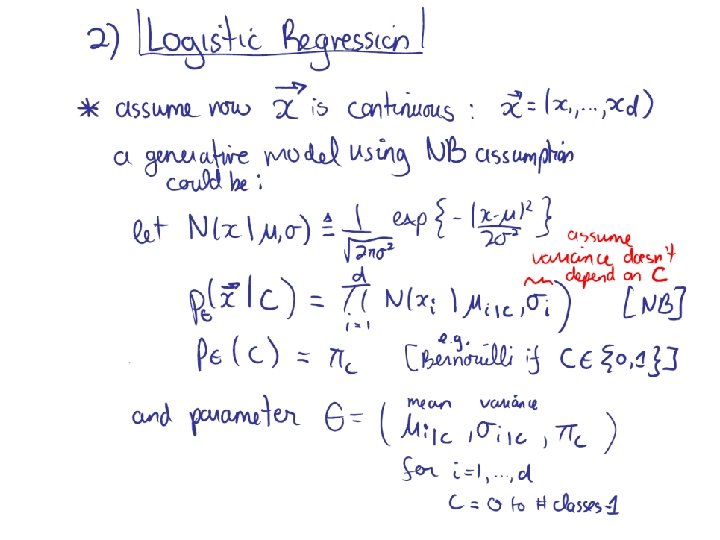 2) Logistic Regression
* assume now x⃗ is continuous: x⃗ = (x₁,...,xd)
a generative model using NB assumption
could be:
let N(x|μ,σ) ≜ 1/√(2πσ²) exp{-(x-μ)²/2σ²}
assume
variance doesn't
depend on C
pθ(x⃗|C) = ∏ᵢ₌₁ᵈ N(xᵢ|μᵢ|c,σᵢ) [NB]
pθ(C) = πc [e.g. Bernouilli if C∈{0,1}]
mean variance
and parameter θ = (μᵢ|c, σᵢ|c, πc)
for i=1,...,d
C = 0 to # classes-1